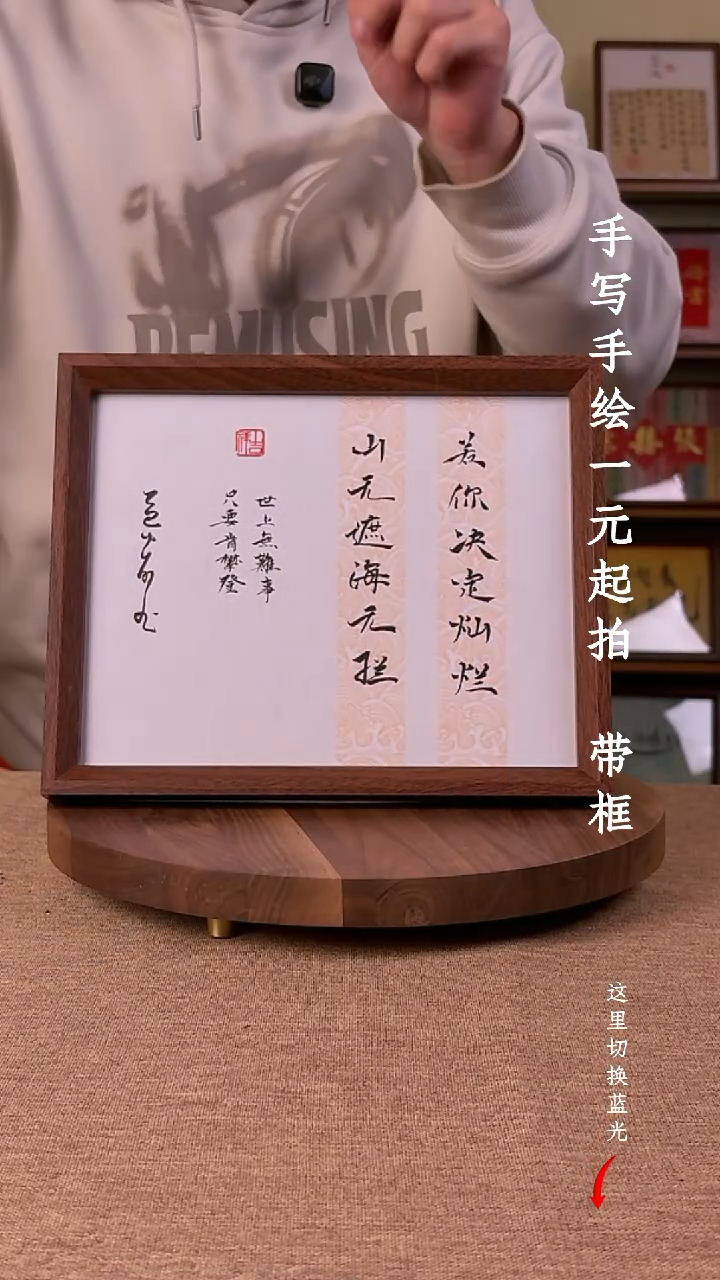 若你决定灿烂
山无遮海无拦
世上無難事
只要肯攀登
手写手绘一元起拍 带框
这里切换蓝光